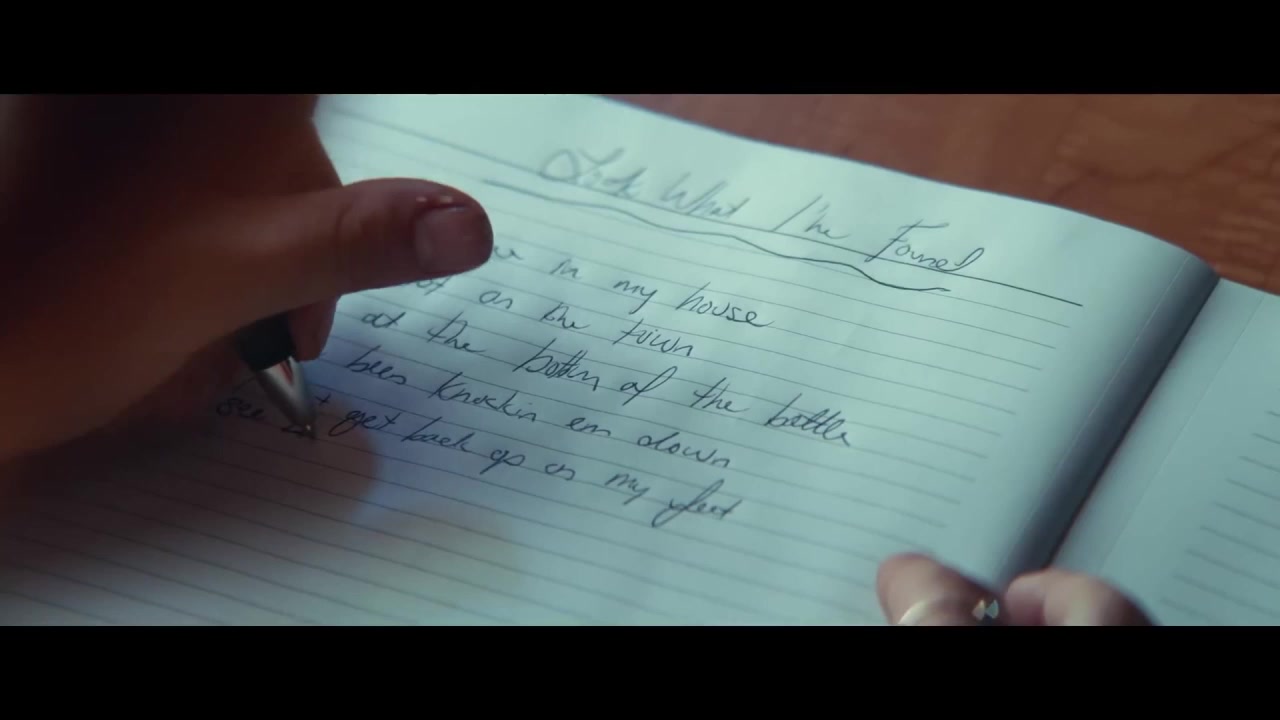 Look What I've Found
in my house
on the town
at the bottm of the bottle
been knockin em down
get back up on my feet